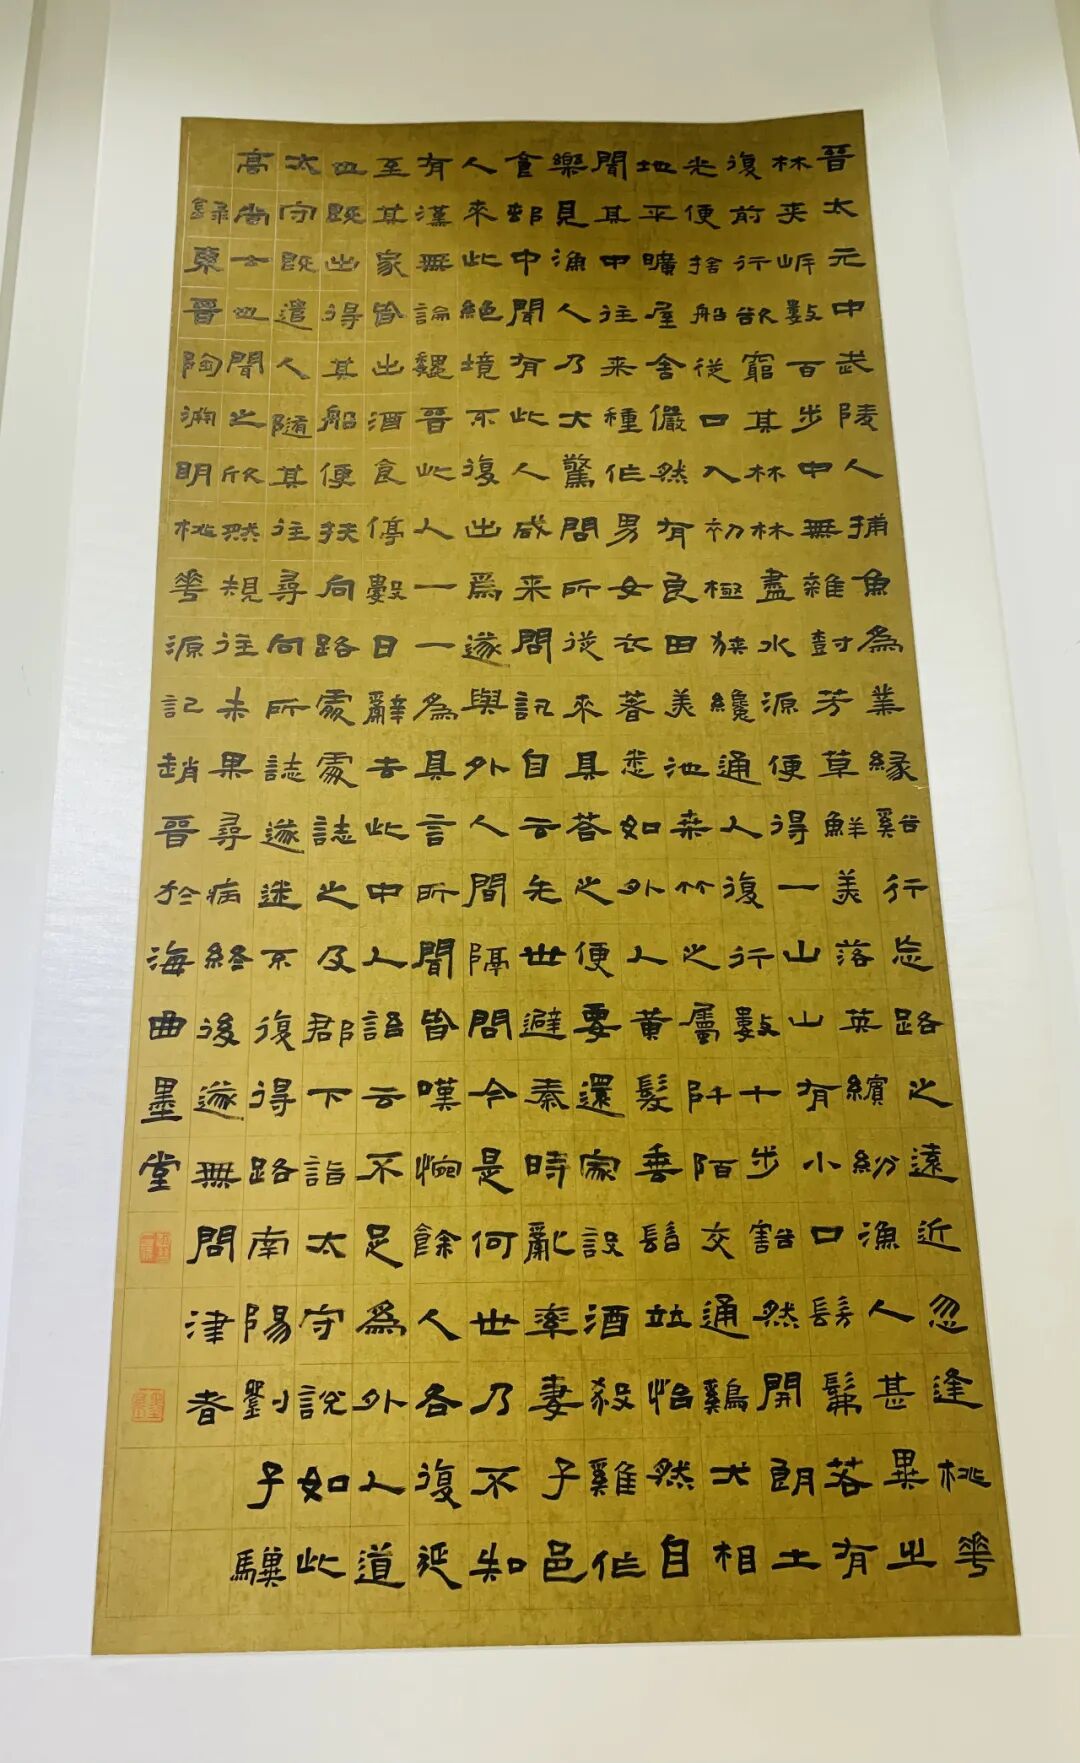 晉太元中武陵人捕魚為業緣谿行忘路之遠近忽逢桃華
林夾岸數百步中無雜尌芳草鮮美落英繽紛漁人甚異之
復前行欲窮其林林盡水源便得一山山有小口髣髴若有
光便捨船從口入初極狹纔通人復行數十步豁然開朗土
地平曠屋舍儼然有良田美池桑竹之屬阡陌交通鷄犬相
聞其中往来種作男女衣著悉如外人黃髮垂髫並怡然自
樂見漁人乃大驚問所從來具答之便要還家設酒殺雞作
食邨中聞有此人咸来問訊自云先世避秦時亂率妻子邑
人來此絕境不復出焉遂與外人間隔問今是何世乃不知
有漢無論魏晉此人一一為具言所聞皆嘆惋餘人各復延
至其家皆出酒食停數日辭去此中人語云不足為外人道
也既出得其船便扶向路處處誌之及郡下詣太守說如此
太守既遣人隨其往尋向所誌遂迷不復得路南陽劉子驥
高尚士也聞之欣然規往未果尋病終後遂無問津者
錄東晉陶淵明桃華源記趙晉於海曲墨堂